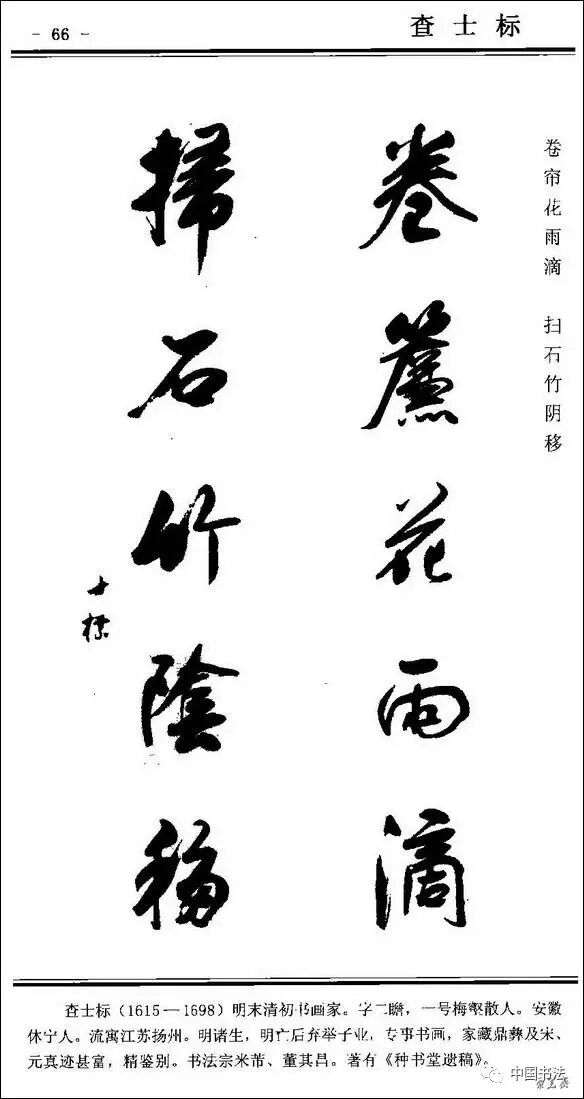 - 66 -
查士标
卷帘花雨滴 扫石竹阴移
卷簾花雨滴
掃石竹陰移
士標
查士标（1615—1698）明末清初书画家。字二瞻，一号梅壑散人。安徽
休宁人。流寓江苏扬州。明诸生，明亡后弃举子业，专事书画，家藏鼎彝及宋、
元真迹甚富，精鉴别。书法宗米芾、董其昌。著有《种书堂遗稿》。
中国书法